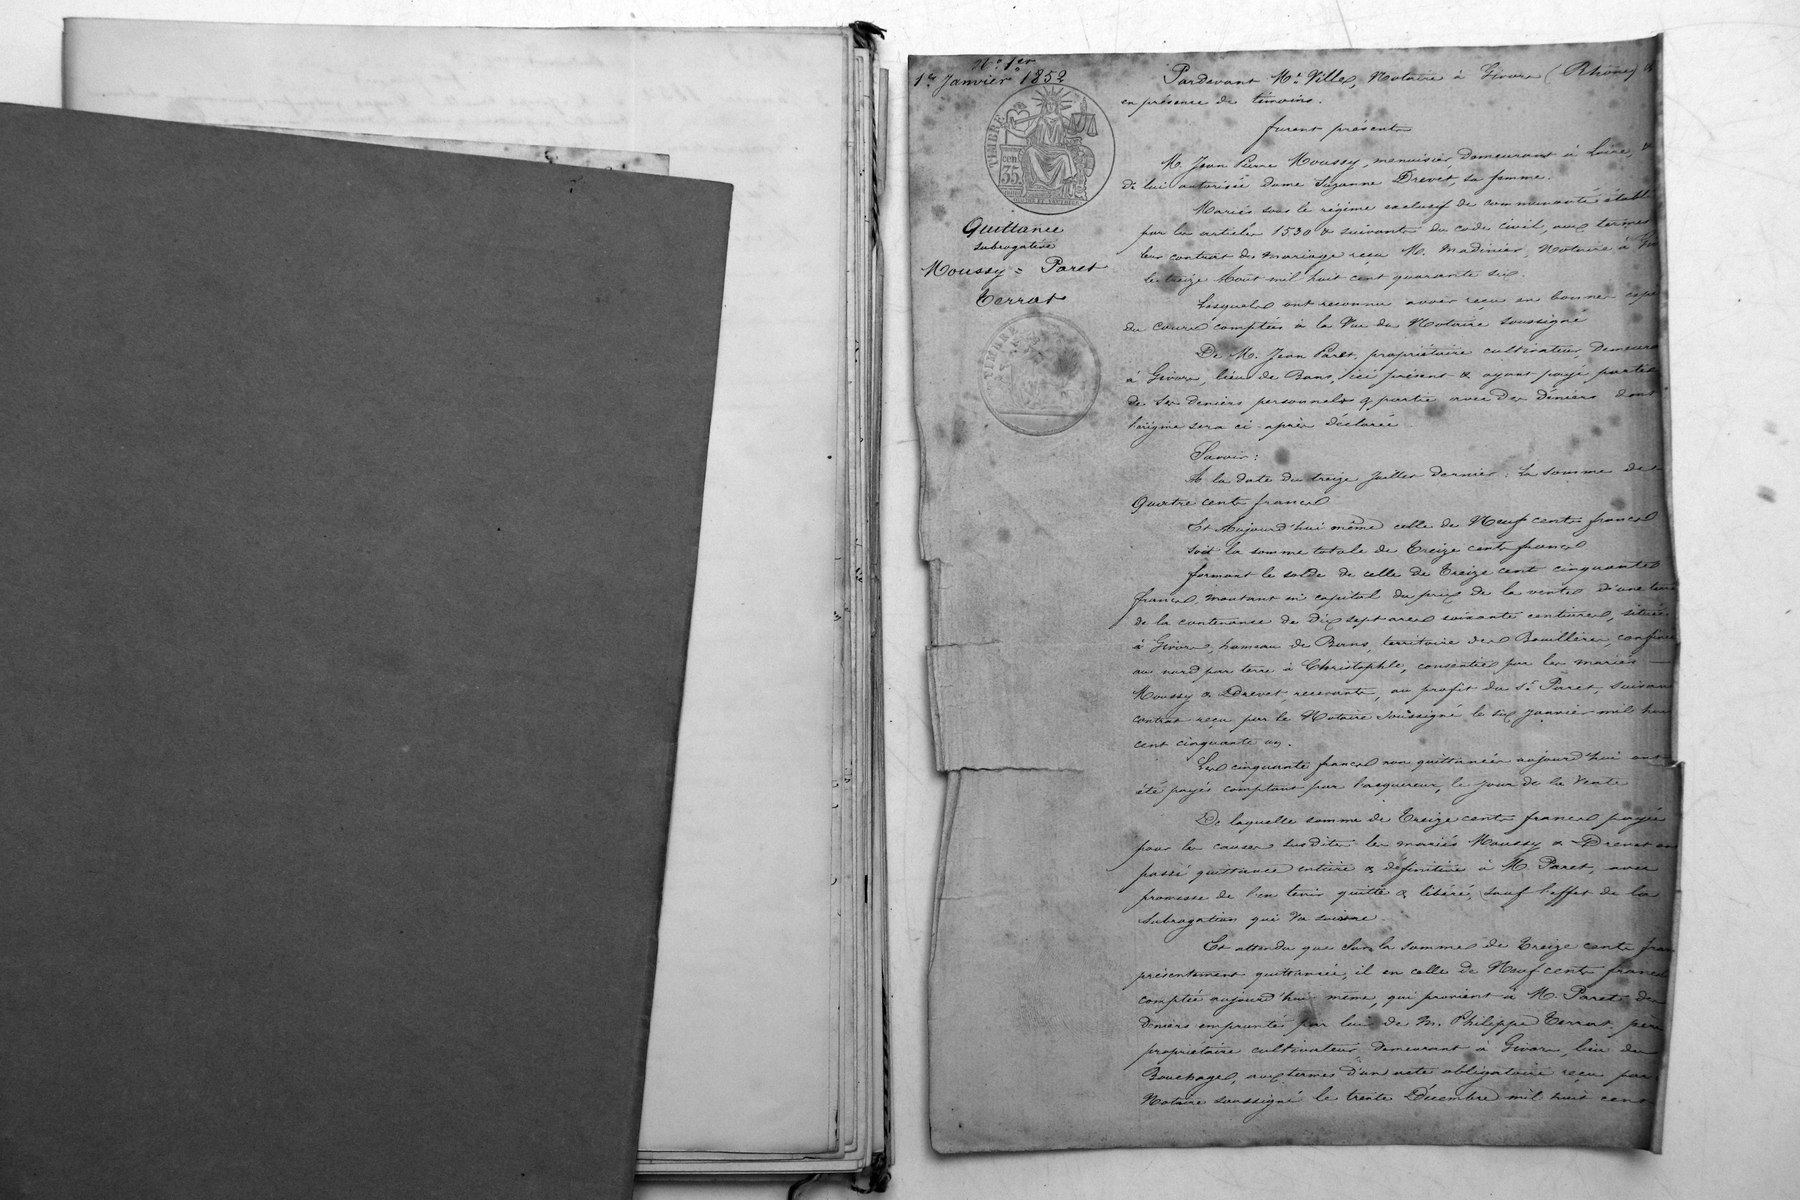 N.º 1er
1er Janvier 1852
TIMBRE
cen
35
Quittance
subrogative
Moussy = Paret
Terrat
TIMBRE
Pardevant Me. Ville, Notaire à Givors (Rhône) &
en présence de témoins.
furent présents
M. Jean Pierre Moussy, menuisier demeurant à Loire, &
de lui autorisée dame Suzanne Drevet, sa femme.
Mariés sous le régime exclusif de communauté établi
par les articles 1530 & suivants du code civil, aux termes
leur contrat de mariage reçu M. Madinier, Notaire à
le treize Août mil huit cent quarante six.
Lesquels ont reconnu avoir reçu en bonnes
du cours comptées à la Vue du Notaire soussigné
De M. Jean Paret, propriétaire cultivateur, demeura
à Givors, lieu de Bans, ici présent & ayant payé partie
de ses deniers personnels & partie avec des deniers dont
l'origine sera ci-après déclarée.
Savoir:
A la date du treize Juillet dernier: la somme de
Quatre cents francs
Et Aujourd'hui même celle de Neuf cents francs
soit la somme totale de Treize cents francs
formant le solde de celle de Treize cent cinquante
francs, montant en capital du prix de la vente d'une terre
de la contenance de dix sept ares soixante centiares, située
à Givors, hameau de Bans, territoire des Bouillères, confinée
au nord par terre à Christophle, consentie par les mariés —
Moussy & Drevet, recevants, au profit du Sr. Paret, suivant
contrat reçu par le Notaire soussigné le six Janvier mil hui
cent cinquante un.
Les cinquante francs non quittancés aujourd'hui ont
été payés comptant par l'acquéreur, le jour de la Vente
De laquelle somme de Treize cents francs payée
pour les causes susdites les mariés Moussy & Drevet on
passé quittance entière & définitive à M. Paret, avec
promesse de l'en tenir quitte & libéré, sauf l'effet de la
subrogation qui Va suivre.
Et attendu que sur la somme de Treize cents fran
présentement quittancée, il en celle de Neuf cents francs
comptée aujourd'hui même, qui provient à M. Paret de
deniers empruntés par lui de M. Philippe Terrat père
propriétaire cultivateur demeurant à Givors, lieu de
Bouchage, aux termes d'un acte obligatoire reçu par
Notaire soussigné le trente Décembre mil huit cent